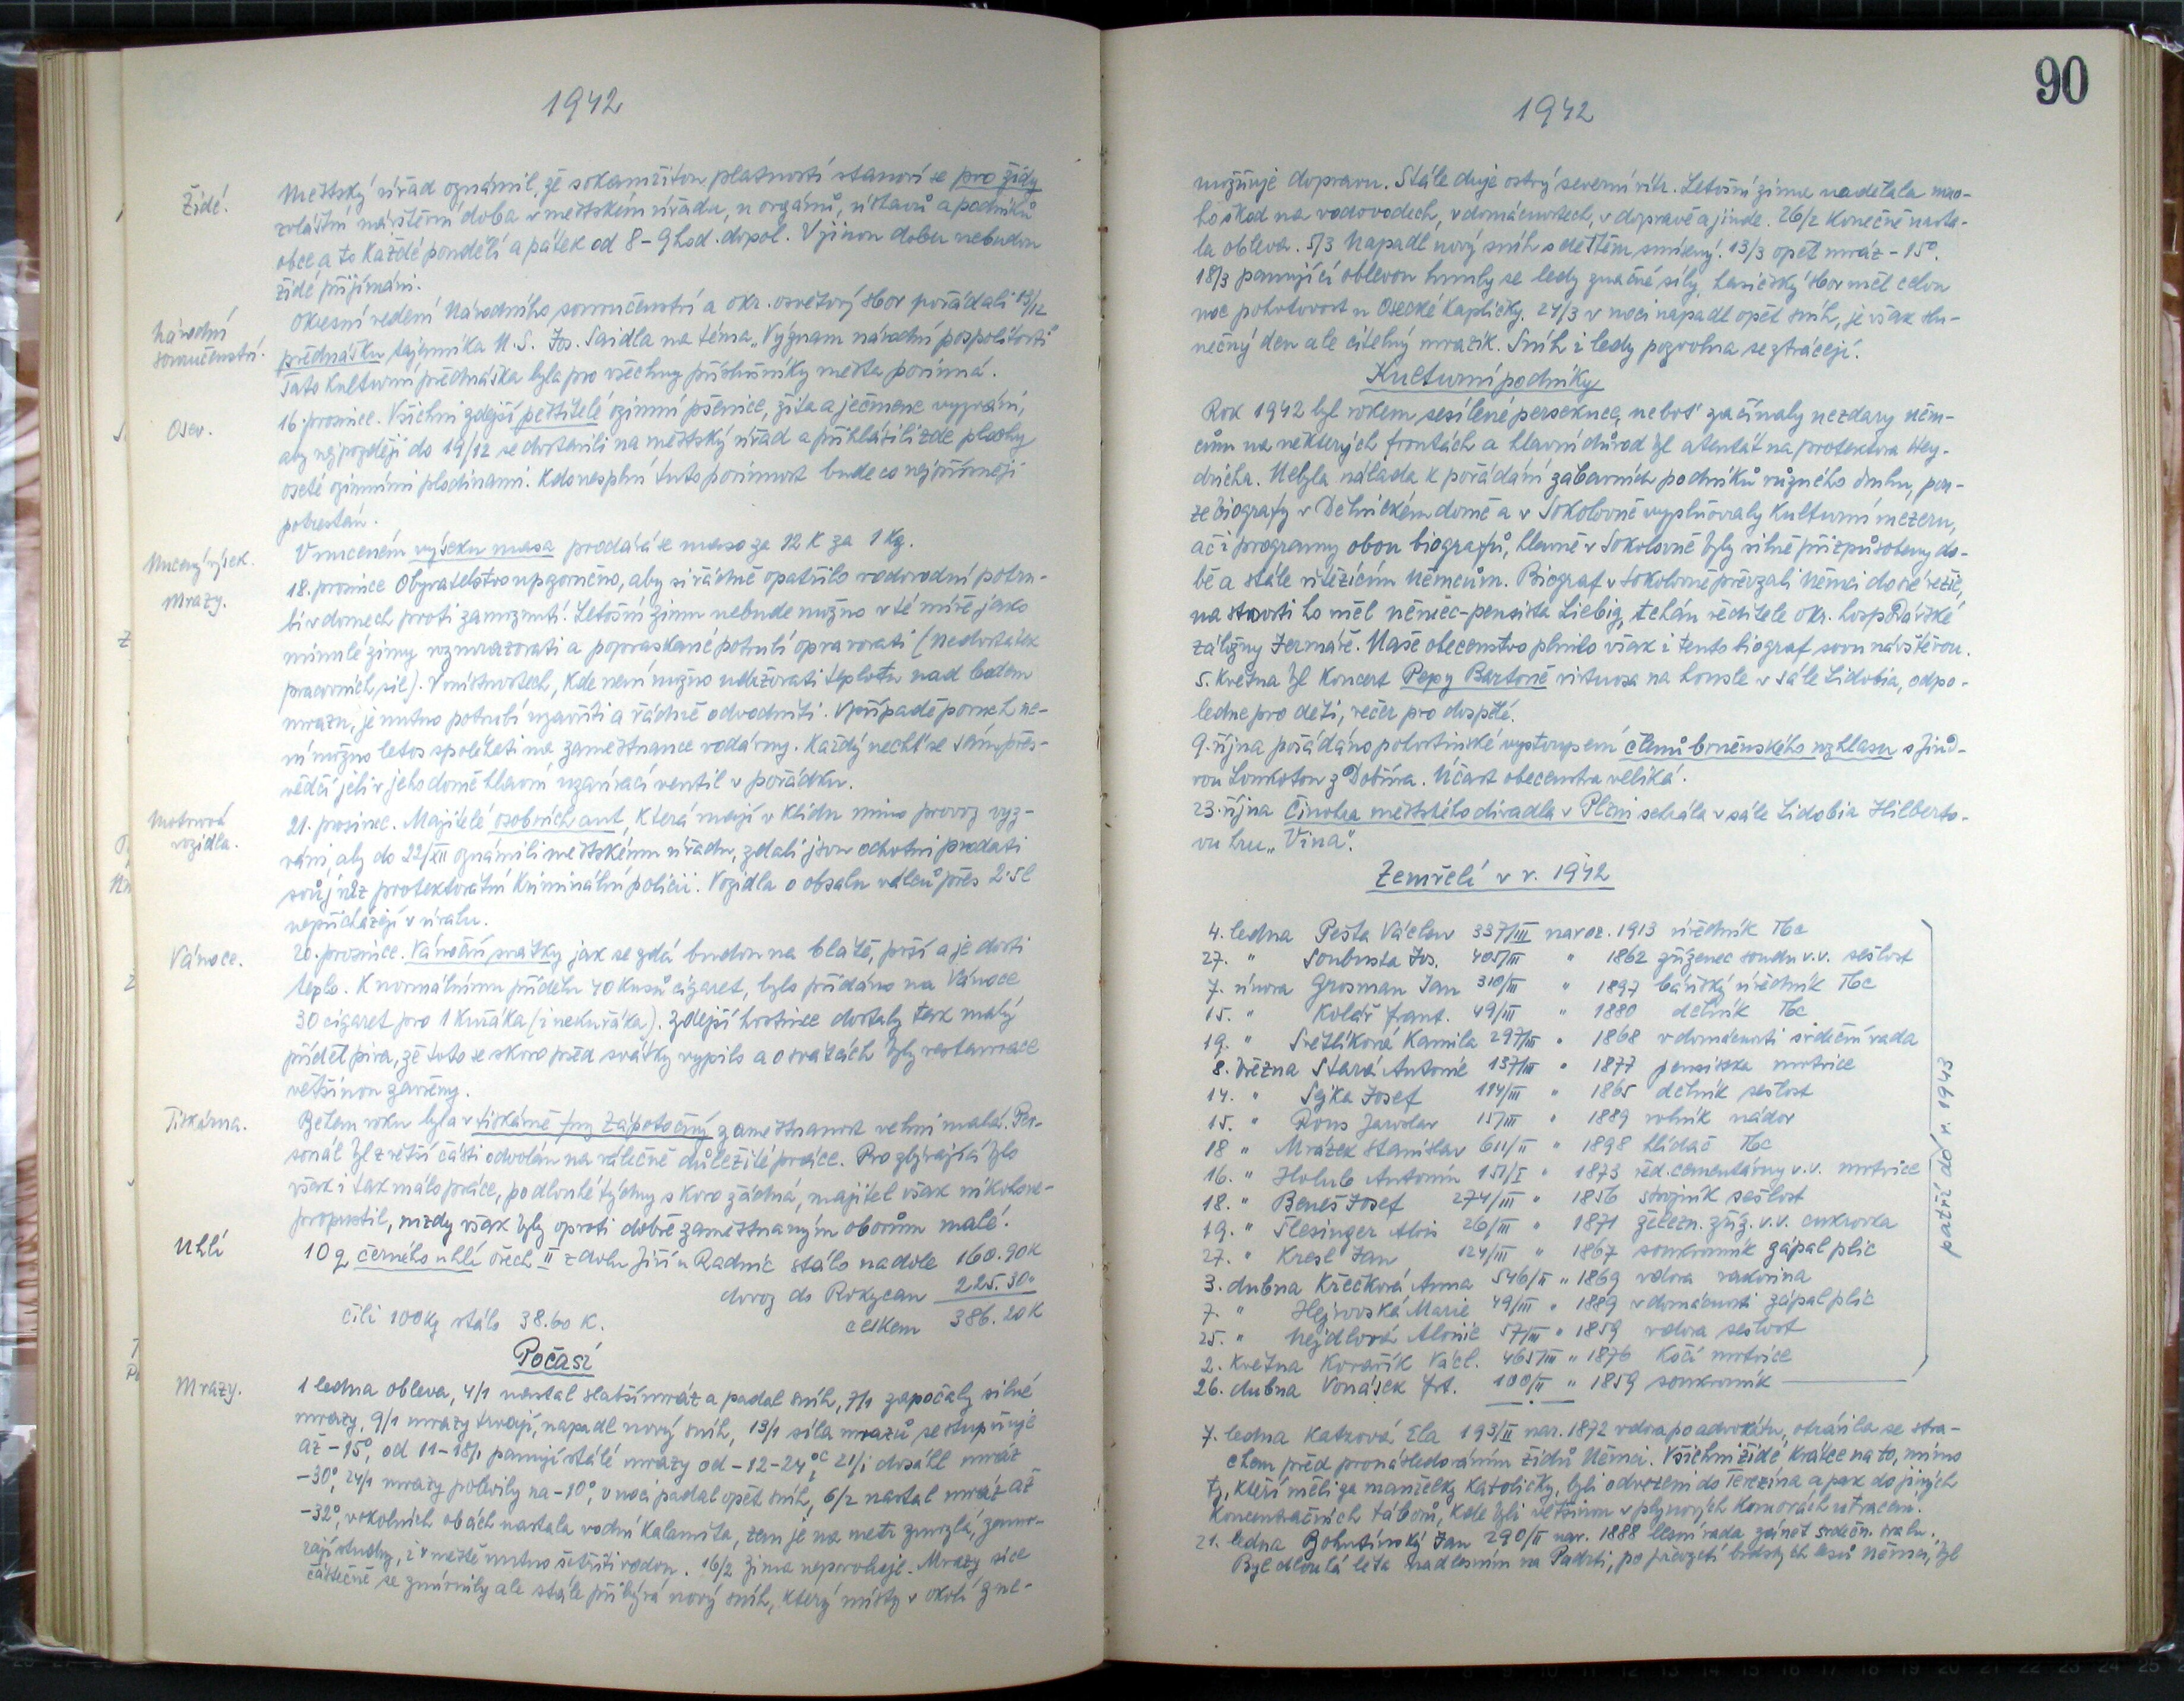 1942
Židé.
Městský úřad oznámil, že s okamžitou platností stanoví se pro židy
zvláštní návštěvní doba v městském úřadu, u orgánů, ústavů a podniků
obce a to každé pondělí a pátek od 8-9 hod. dopol. V jinou dobu nebudou
židé přijímáni.
Národní
souručenství.
Okresní vedení Národního souručenství a okr. osvětový sbor pořádali 13/12
přednášku tajemníka N.S. Jos. Saidla na téma „Význam národní pospolitosti"
Tato kulturní přednáška byla pro všechny příslušníky města povinná.
Osev.
16. prosince. Všichni zdejší pěstitelé ozimní pšenice, žita a ječmene vyzváni,
aby nejpozději do 19/12 se dostavili na městský úřad a přihlásili zde plochy
oseté ozimními plodinami. Kdo nesplní tuto povinnost bude co nejpřísněji
potrestán.
Nucený výsek.
V nuceném výseku masa prodává se maso za 12 K za 1 Kg.
Mrazy.
18. prosince Obyvatelstvo upozorněno, aby si řádně opatřilo vodovodní potru-
bí v domech proti zamrznutí. Letošní zimu nebude možno v té míře jako
minulé zimy rozmrazovati a popraskané potrubí opravovati (Nedostatek
pracovních sil). V místnostech, kde není možno udržovati teplotu nad bodem
mrazu, je nutno potrubí uzavříti a řádně odvodniti. V případě poruch ne-
ní možno letos spoléhati na zaměstnance vodárny. Každý nechť se sám přes-
vědčí jeli v jeho domě hlavní uzavírací ventil v pořádku.
Motorová
vozidla.
21. prosince. Majitelé osobních aut, která mají v klidu mimo provoz vyz-
váni, aby do 22/XII oznámili městskému úřadu, zdali jsou ochotni prodati
svůj vůz protektorátní kriminální policii. Vozidla o obsahu válců přes 2·5l
nepřicházejí v úvahu.
Vánoce.
20. prosince. Vánoční svátky jak se zdá budou na blátě, prší a je dosti
teplo. K normálnímu přídělu 40 kusů cigaret, bylo přidáno na Vánoce
30 cigaret pro 1 kuřáka (i nekuřáka). Zdejší hostince dostaly tak malý
příděl piva, že toto se skoro před svátky vypilo a o svátcích byly restaurace
většinou zavřeny.
Tiskárna.
Během roku byla v tiskárně fmy Zápotočný zaměstnanost velmi malá. Per-
sonál byl z větší části odvolán na válečně důležité práce. Pro zbývající bylo
však i tak málo práce, po dlouhé týdny skoro žádná, majitel však nikoho ne-
propustil, mzdy však byly oproti dobře zaměstnaným oborům malé.
Uhlí
10 q černého uhlí ořech II z dolu Jiří u Radnic stálo na dole 160.90 K
dovoz do Rokycan 225.30"
čili 100 Kg stálo 38.60 K. celkem 386.20 K
Počasí
Mrazy.
1 ledna obleva, 4/1 nastal slabší mráz a padal sníh, 7/1 započaly silné
mrazy, 9/1 mrazy trvají, napadl nový sníh, 13/1 síla mrazů se stupňuje
až -15°, od 11-18/1 panují stálé mrazy od -12-24°C, 21/1 dosáhl mráz
-30°, 24/1 mrazy polevily na -10°, v noci padal opět sníh, 6/2 nastal mráz až
-32°, v okolních obcích nastala vodní kalamita, zem je na metr zmrzlá, zamr-
zají studny, i v městě nutno šetřiti vodou. 16/2 zima nepovoluje. Mrazy sice
částečně se zmírnily ale stále přibývá nový sníh, který místy v okolí zne-
90
1942
možňuje dopravu. Stále duje ostrý severní vítr. Letošní zima nadělala mno-
ho škod na vodovodech, v domácnostech, v dopravě a jinde. 26/2 Konečně nasta-
la obleva. 5/3 Napadl nový sníh s deštěm smíšený. 13/3 opět mráz -15°.
18/3 panující oblevou hnuly se ledy značné síly, hasičský sbor měl celou
noc pohotovost u Osecké kapličky. 24/3 v noci napadl opět sníh, je však slu-
nečný den ale citelný mrazík. Sníh i ledy pozvolna se ztrácejí.
Kulturní podniky
Rok 1942 byl rokem sesílené persekuce, neboť začínaly nezdary něm-
cům na některých frontách a hlavní důvod byl atentát na protektora Hey-
dricha. Nebyla nálada k pořádání zábavních podniků různého druhu, pou-
ze biografy v Dělnickém domě a v Sokolovně vyplňovaly kulturní mezeru,
ač i programy obou biografů, hlavně v Sokolovně byly silně přizpůsobeny do-
bě a stále vítězícím Němcům. Biograf v sokolovně převzali Němci do své režie,
na starosti ho měl němec-pensista Liebig, tchán ředitele okr. hospodářské
záložny Jermáře. Naše obecenstvo plnilo však i tento biograf svou návštěvou.
5. května byl koncert Pepy Bartoně virtuosa na housle v sále Lidobia, odpo-
ledne pro děti, večer pro dospělé.
9. října pořádáno pohostinské vystoupení členů brněnského rozhlasu s Jind-
rou Loukotou z Dobříva. Účast obecenstva veliká.
23. října Činohra městského divadla v Plzni sehrála v sále Lidobia Hilberto-
vu hru „Vina".
Zemřelí v r. 1942
4. ledna Pešta Václav 337/III naroz. 1913 úředník Tbc
27. " Soubusta Jos. 405/III " 1862 zřízenec soudu v.v. sešlost
7. února Grosman Jan 310/III " 1897 báňský úředník Tbc
15. " Kolář Frant. 49/III " 1880 dělník Tbc
19. " Světlíková Kamila 297/III " 1868 v domácnosti srdeční vada
8. března Stará Antonie 137/III " 1877 pensistka mrtvice
14. " Sejka Josef 194/III " 1865 dělník sešlost
15. " Rous Jaroslav 15/III " 1889 rolník nádor
18 " Mrázek Stanislav 611/II " 1898 hlídač Tbc
16. " Holub Antonín 151/I " 1873 řed. cementárny v.v. mrtvice
18. " Beneš Josef 274/III " 1856 strojník sešlost
19. " Šlesinger Alois 26/III " 1871 železn. zříz. v.v. cukrovka
27. " Kresl Jan 124/III " 1867 soukromník zápal plic
3. dubna Křečková Anna 546/II " 1869 vdova rakovina
7. " Hejrovská Marie 49/III " 1889 v domácnosti zápal plic
25. " Nejdlová Aloisie 57/III " 1859 vdova sešlost
2. května Kovařík Václ. 465/III " 1876 kočí mrtvice
26. dubna Vonásek Frt. 100/II " 1859 soukromník
patří do r. 1943
7. ledna Katzová Ela 193/II nar. 1872 vdova po advokátu, otrávila se stra-
chem před pronásledováním židů Němci. Všichni židé krátce na to, mimo
ty, kteří měli za manželky katoličky, byli odvezeni do Terezína a pak do jiných
koncentračních táborů, kde byli většinou v plynových komorách utraceni.
21. ledna Bohutínský Jan 290/II nar. 1888 lesní rada zánět srdečn. svalu.
Byl dlouhá léta nadlesním na Padrti, po převzetí brdských lesů Němci, byl